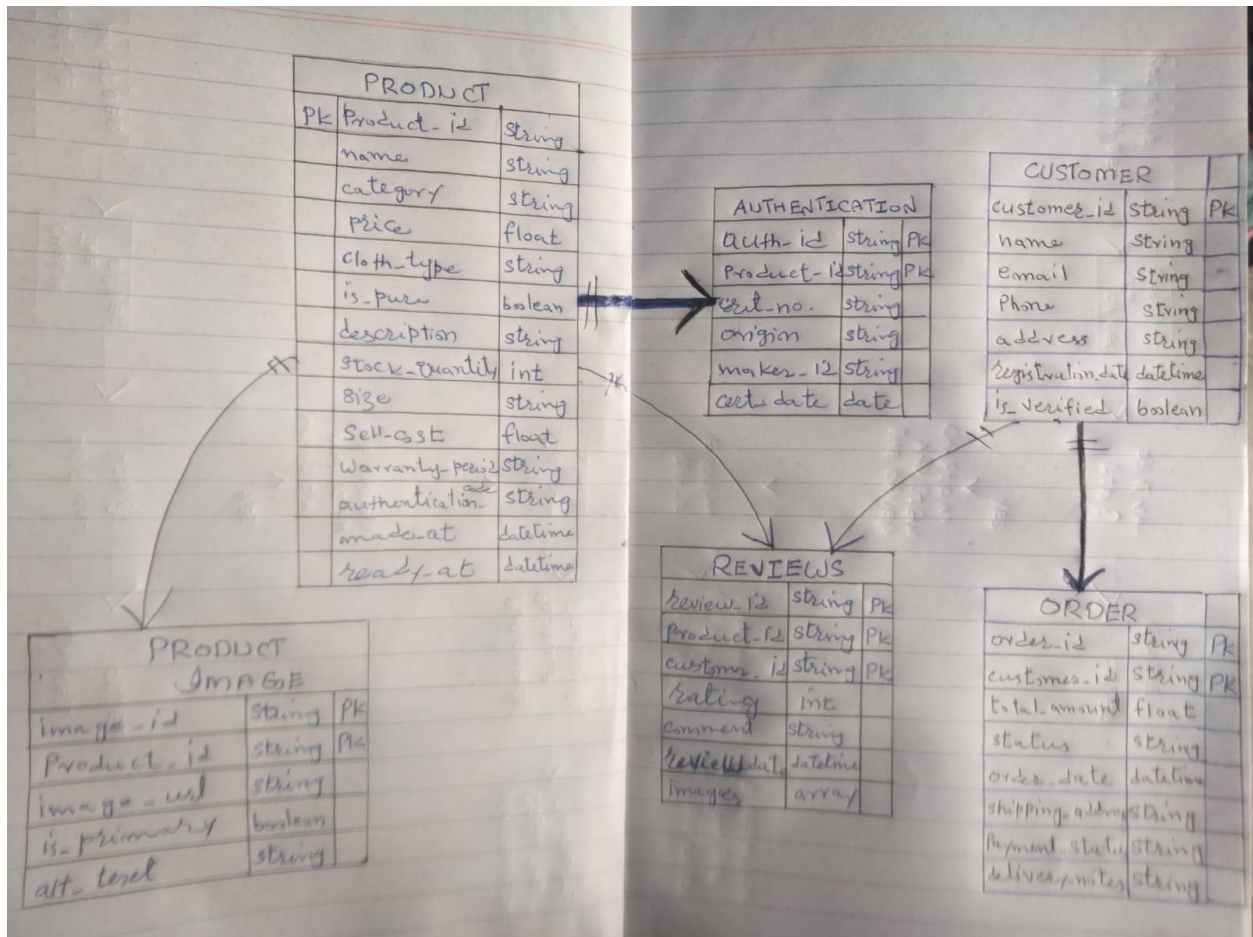 PRODUCT
PK Product_id string
name string
category string
price float
cloth_type string
is_pure boolean
description string
stock_quantity int
size string
Sell-cost float
Warranty_period string
authentication_code string
made_at datetime
ready_at datetime
AUTHENTICATION
auth_id string PK
Product_id string PK
cert_no. string
origin string
maker_id string
cert_date date
CUSTOMER
customer_id string PK
name string
email string
Phone string
address string
registration_date datetime
is_verified boolean
PRODUCT
IMAGE
image_id string PK
Product_id string PK
image_url string
is_primary boolean
alt_text string
REVIEWS
review_id string PK
Product_id string PK
customer_id string PK
rating int
comment string
review_dat datetime
images array
ORDER
order_id string PK
customer_id string PK
total_amount float
status string
order_date datetime
shipping_address string
Payment_status string
delivery_notes string